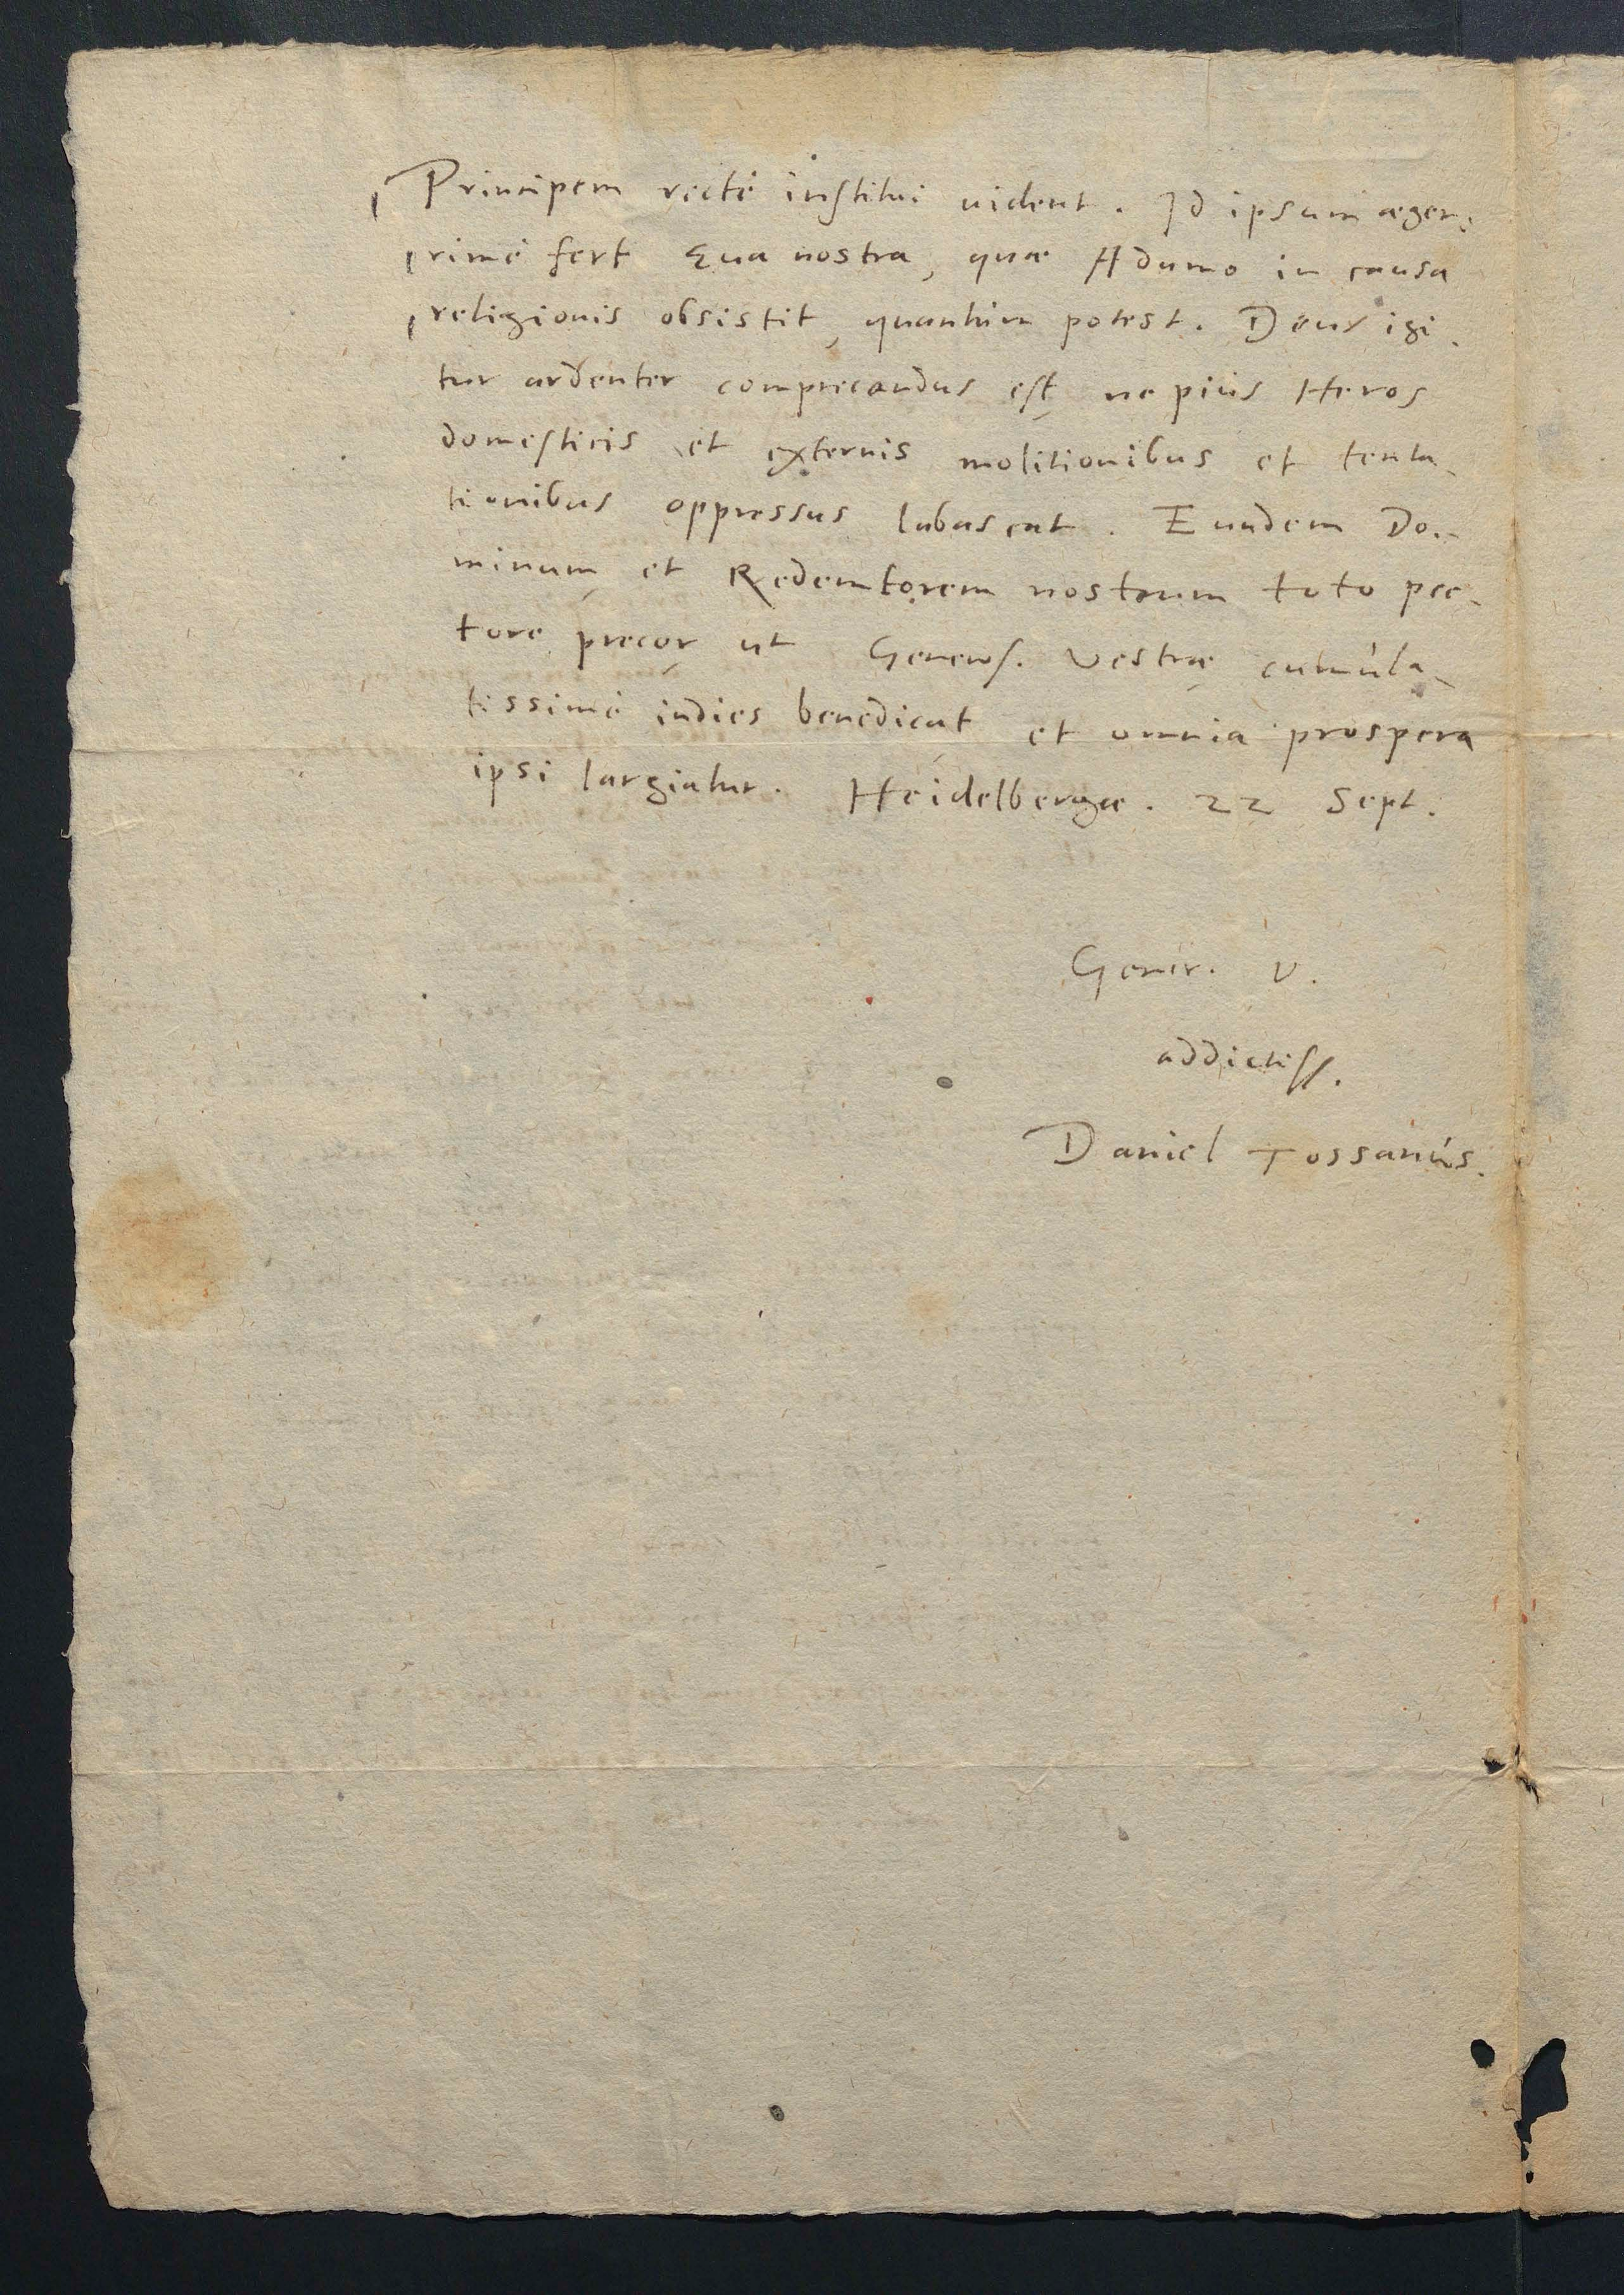 Principem rectè institui uident. Id ipsum aeger-
rimè fert Eua nostra, quae Adamo in causa
religionis obsistit, quantùm potest. Deus igi-
tur ardenter comprecandus est ne pius Heros
domesticis et externis molitionibus et tenta-
tionibus oppressus labascat. Eundem Do-
minum et Redemtorem nostrum toto pec-
tore precor ut Generos. Vestrae cumula-
tissimè indies benedicat et omnia prospera
ipsi largiatur. Heidelbergae. 22 Sept.
Gener. V.
addictiss.
Daniel Tossanus.